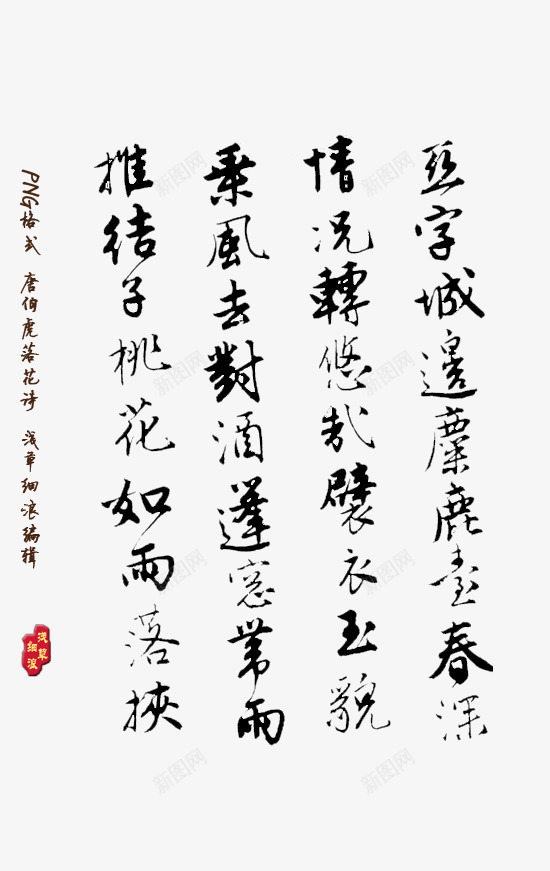 亞字城邊麋鹿臺春深
情況轉悠哉襞衣玉貌
乘風去對酒蓬窓帶雨
推結子桃花如雨落挾
PNG格式 唐伯虎落花诗 浅草细浪编辑
浅草
细浪
新图网